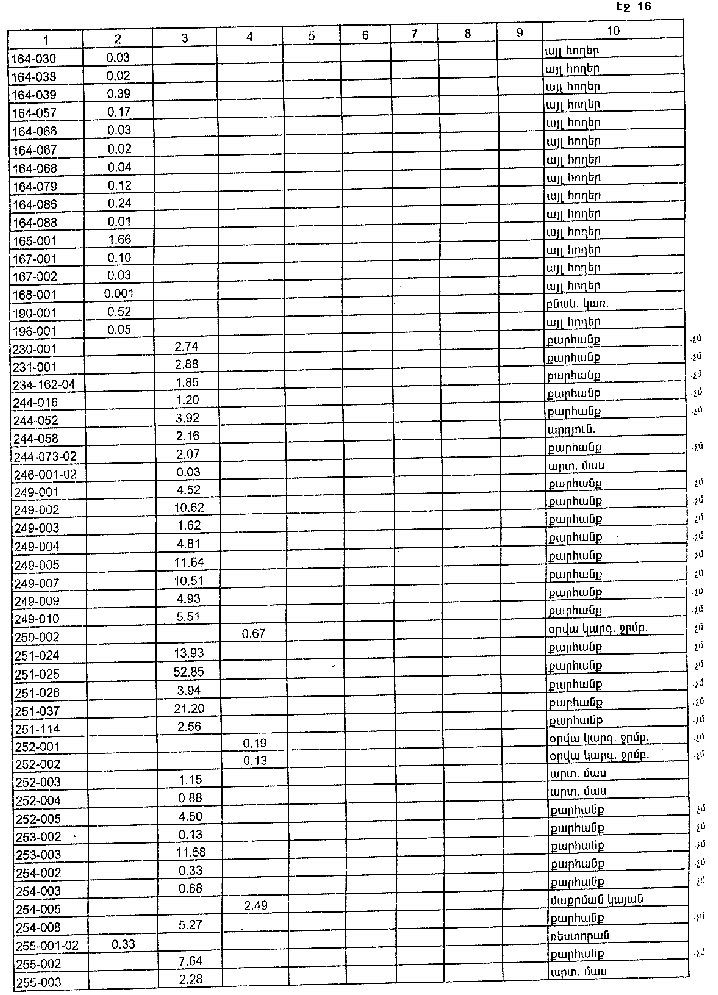 էջ 16
1 2 3 4 5 6 7 8 9 10
164-030 0.03 այլ հողեր
164-038 0.02 այլ հողեր
164-039 0.39 այլ հողեր
164-057 0.17 այլ հողեր
164-066 0.03 այլ հողեր
164-067 0.02 այլ հողեր
164-068 0.04 այլ հողեր
164-079 0.12 այլ հողեր
164-086 0.24 այլ հողեր
164-088 0.01 այլ հողեր
165-001 1.66 այլ հողեր
167-001 0.10 այլ հողեր
167-002 0.03 այլ հողեր
168-001 0.001 այլ հողեր
190-001 0.52 բնակ. կառ.
196-001 0.05 այլ հողեր
230-001 2.74 քարհանք
231-001 2.88 քարհանք
234-162-04 1.85 քարհանք
244-016 1.20 քարհանք
244-052 3.92 քարհանք
244-058 2.16 արդյուն.
244-073-02 2.07 քարհանք
246-001-02 0.03 արտ. մաս
249-001 4.52 քարհանք
249-002 10.62 քարհանք
249-003 1.62 քարհանք
249-004 4.81 քարհանք
249-005 11.64 քարհանք
249-007 10.51 քարհանք
249-009 4.93 քարհանք
249-010 5.51 քարհանք
250-002 0.67 օրվա կարգ. ջրմբ.
251-024 13.93 քարհանք
251-025 52.85 քարհանք
251-026 3.94 քարհանք
251-037 21.20 քարհանք
251-114 2.56 քարհանք
252-001 0.19 օրվա կարգ. ջրմբ.
252-002 0.13 օրվա կարգ. ջրմբ.
252-003 1.15 արտ. մաս
252-004 0.88 արտ. մաս
252-005 4.50 քարհանք
253-002 0.13 քարհանք
253-003 11.68 քարհանք
254-002 0.33 քարհանք
254-003 0.68 քարհանք
254-005 2.49 մաքրման կայան
254-008 5.27 քարհանք
255-001-02 0.33 ռեստորան
255-002 7.64 քարհանք
255-003 2.28 արտ. մաս